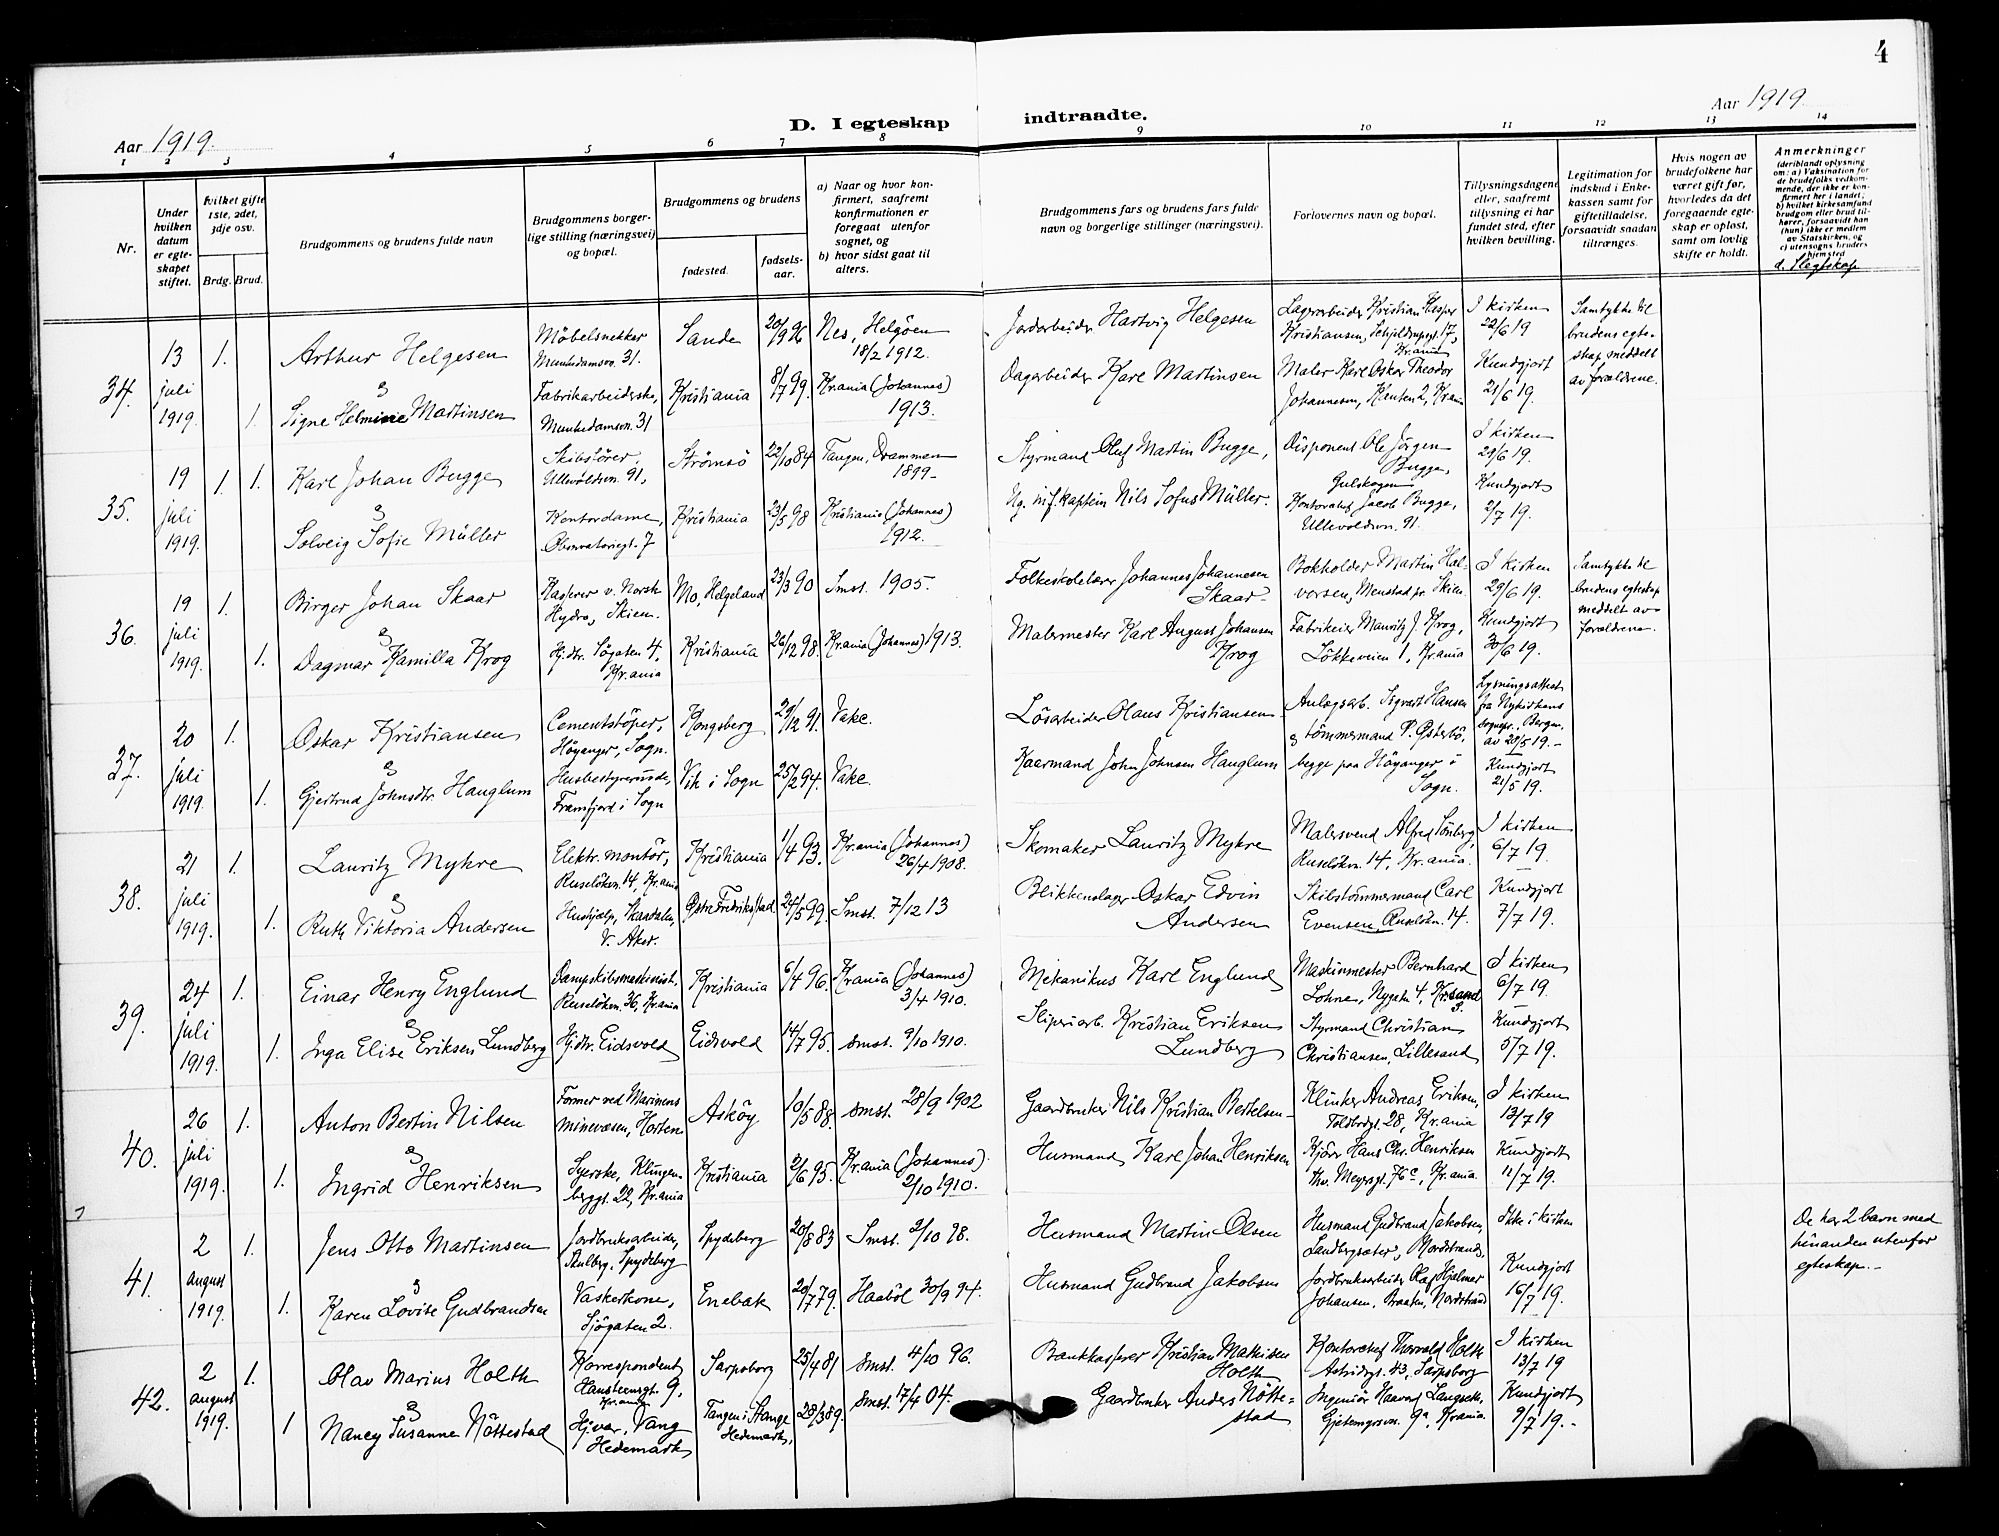 4
Aar 1919.
D. I egteskap
indtraadte.
Aar 1919
1 2 3 4 5 6 7 8 9 10 11 12 13 14
Nr.
Under hvilken datum er egte-skapet stiftet.
hvilket gifte 1ste, 2det, 3dje osv.
Brdg. Brud.
Brudgommens og brudens fulde navn
Brudgommens borger-lige stilling (næringsvei) og bopæl.
Brudgommens og brudens
fødested.
fødsels-aar.
a) Naar og hvor kon-firmert, saafremt konfirmationen er foregaat utenfor sognet, og
b) hvor sidst gaat til alters.
Brudgommens fars og brudens fars fulde navn og borgerlige stillinger (næringsvei).
Forlovernes navn og bopæl.
Tillysningsdagene eller, saafremt tillysning ei har fundet sted, efter hvilken bevilling.
Legitimation for indskud i Enke-kassen samt for giftetilladelse, forsaavidt saadan tiltrænges.
Hvis nogen av brudefolkene har været gift før, hvorledes da det foregaaende egte-skap er opløst, samt om lovlig skifte er holdt.
Anmerkninger
(deriblandt oplysning om: a) Vaksination for de brudefolks vedkom-mende, der ikke er kon-firmert her i landet; b) hvilket kirkesamfund brudgom eller brud til-hører, forsaavidt han (hun) ikke er medlem av Statskirken, og c) utensogns bruders hjemsted
d. Slegtskap
34.
13 juli 1919.
1.
Arthur Helgesen
Möbelsnekker Munkedamsvn. 31.
Sande
20/9 96
Nes, Helgöen 18/2 1912.
Jordarbeider Hartvig Helgesen
Lagerarbeider Kristian Kasper Kristiansen, Schjeldrupsgt. 17, Kr.ania
I kirken 22/6 19
Samtykke til brudens egte-skap meddelt av forældrene.
&
1.
Signe Helmine Martinsen
Fabrikarbeiderske, Munkedamsvn. 31
Kristiania
8/7 99.
Kr.ania (Johannes) 1913.
Dagarbeider Karl Martinsen
Maler Karl Oskar Theodor Johannesen, Kr.ania
Kundgjort 21/6 19.
35.
19 juli 1919.
1. 1.
Karl Johan Bugge
Skibsförer, Ullevoldsvn. 91,
Strömsö
22/10 84
Tangen, Drammen 1899.
Styrmand Oluf Martin Bugge,
Disponent Ole Jörgen Bugge, Gulskogen
I kirken 29/6 19.
&
Solveig Sofie Müller
Kontordame, Observatoriegt. 7
Kristiania
23/5 98
Kristiania (Johannes) 1912.
Ng. inf. kaptein Nils Sofus Müller.
Kontorchef Jacob Bugge, Ullevoldsvn. 91.
Kundgjort 2/7 19.
36.
19 juli 1919.
1.
Birger Johan Skaar
Kasserer v. Norsk Hydro, Skien.
Mo, Helgeland
23/3 90
Smst. 1905.
Folkeskolelærer Johannes Johannesen Skaar
Bokholder Martin Hal-vorsen, Menstad pr. Skien.
I kirken 29/6 19.
Samtykke til brudens egteskap meddelt av forældrene.
&
1.
Dagmar Kamilla Krog
Hj.dtr. Sögaten 4, Kr.ania
Kristiania
26/12 98.
Kr.ania (Johannes) 1913.
Malermester Karl August Johansen Krog
Fabrikeier Mauritz J. Krog, Lökkeveien 1, Kr.ania
Kundgjort 30/6 19.
37.
20 juli 1919.
1.
Oskar Kristiansen
Cementstöper, Höyanger, Sogn.
Kongsberg
29/12 91.
Vake.
Lösarbeider Olaus Kristiansen
Anlægsarb. Sigvart Hansen & tömmermand P. Österbö, begge paa Höyanger i Sogn.
Lysningsattest fra Nykirkens sognepr., Bergen, av 29/5 19.
&
1.
Gjertrud Johnsdtr. Hauglum
Husbestyrerinde, Framfjord i Sogn
Vik i Sogn
25/2 94.
Vake.
Kaarmand John Johnsen Hauglum
Kundgjort 21/5 19.
38.
21 juli 1919.
1.
Lauritz Myhre
Elektr. montör, Ruselökvn. 14, Kr.ania
Kristiania
1/4 93.
Kr.ania (Johannes) 26/4 1908.
Skomaker Lauritz Myhre
Malersvend Alfred Tönberg, Ruselökvn. 14, Kr.ania.
I kirken 6/7 19.
&
1.
Ruth Viktoria Andersen
Hushjælp, Skaadalen, V. Aker.
Östre Fredrikstad
24/5 99
Smst. 7/12 13
Blikkenslager Oskar Edvin Andersen
Skibstömmermand Carl Evensen, Ruselökvn. 14.
Kundgjort 7/7 19.
39.
24 juli 1919.
1.
Einar Henry Englund
Dampskibsmaskinist, Ruselökvn. 36, Kr.ania
Kristiania
6/4 96.
Kr.ania (Johannes) 3/4 1910.
Mekanikus Karl Englund
Maskinmester Bernhard Lohne, Nygatn 4, Kr.sand S.
I kirken 6/7 19.
&
1.
Inga Elise Eriksen Lundberg
Hj.dtr. Eidsvold
Eidsvold
14/7 95.
smst. 9/10 1910.
Sliperiarb. Kristian Eriksen Lundberg
Styrmand Christian Christiansen, Lillesand
Kundgjort 5/7 19.
40.
26 juli 1919.
1.
Anton Bertin Nilsen
Former ved Marinens minevæsen, Horten
Asköy
10/5 88.
smst. 28/9 1902
Gaardbruker Nils Kristian Bertelsen
Klinker Andreas Eriksen, Toldbodgt. 28, Kr.ania
I kirken 13/7 19
&
1.
Ingrid Henriksen
Syerske, Klingen-berggt. 22, Kr.ania
Kristiania
2/6 95.
Kr.ania (Johannes) 2/10 1910.
Husmand Karl Johan Henriksen
Kjörer Hans Chr. Henriksen Thv. Meyersgt. 76c, Kr.ania.
Kundgjort 11/7 19.
41.
2 august 1919.
1.
Jens Otto Martinsen
Jordbruksarbeider, Spydeberg
Spydeberg
20/8 83
Smst. 2/10 98.
Husmand Martin Olsen
Husmand Gudbrand Jakobsen, Landbergsæter, Nordstrand,
Ikke i kirken
De har 2 barn med hinanden utenfor egteskap.
&
1.
Karen Lovise Gudbrandsen
Vaskerkone, Sjögaten 2.
Enebak
20/7 79.
Haaböl 30/9 94.
Husmand Gudbrand Jakobsen
Jordbruksarbeider Olaf Hjalmar Johansen, Braaten, Nordstrand
Kundgjort 16/7 19.
42.
2 august 1919.
1.
Olav Marius Holth
Korrespondent Hansteensgt. 9, Kr.ania
Sarpsborg
25/4 81
Smst. 4/10 96.
Bankkasserer Kristian Mathisen Holth
Kontorchef Thorvald Holth Astridsgt. 43, Sarpsborg
I kirken 13/7 19
&
1
Nancy Susanne Nöttestad
Hj.var. Vang Hedemark
Tangen i Stange Hedemark,
28/3 89.
Smst. 17/4 04.
Gaardbruker Anders Nötte-stad
Ingeniör Haavard Langseth, Gjetemyrsvn. 9a, Kr.ania.
Kundgjort 9/7 19.